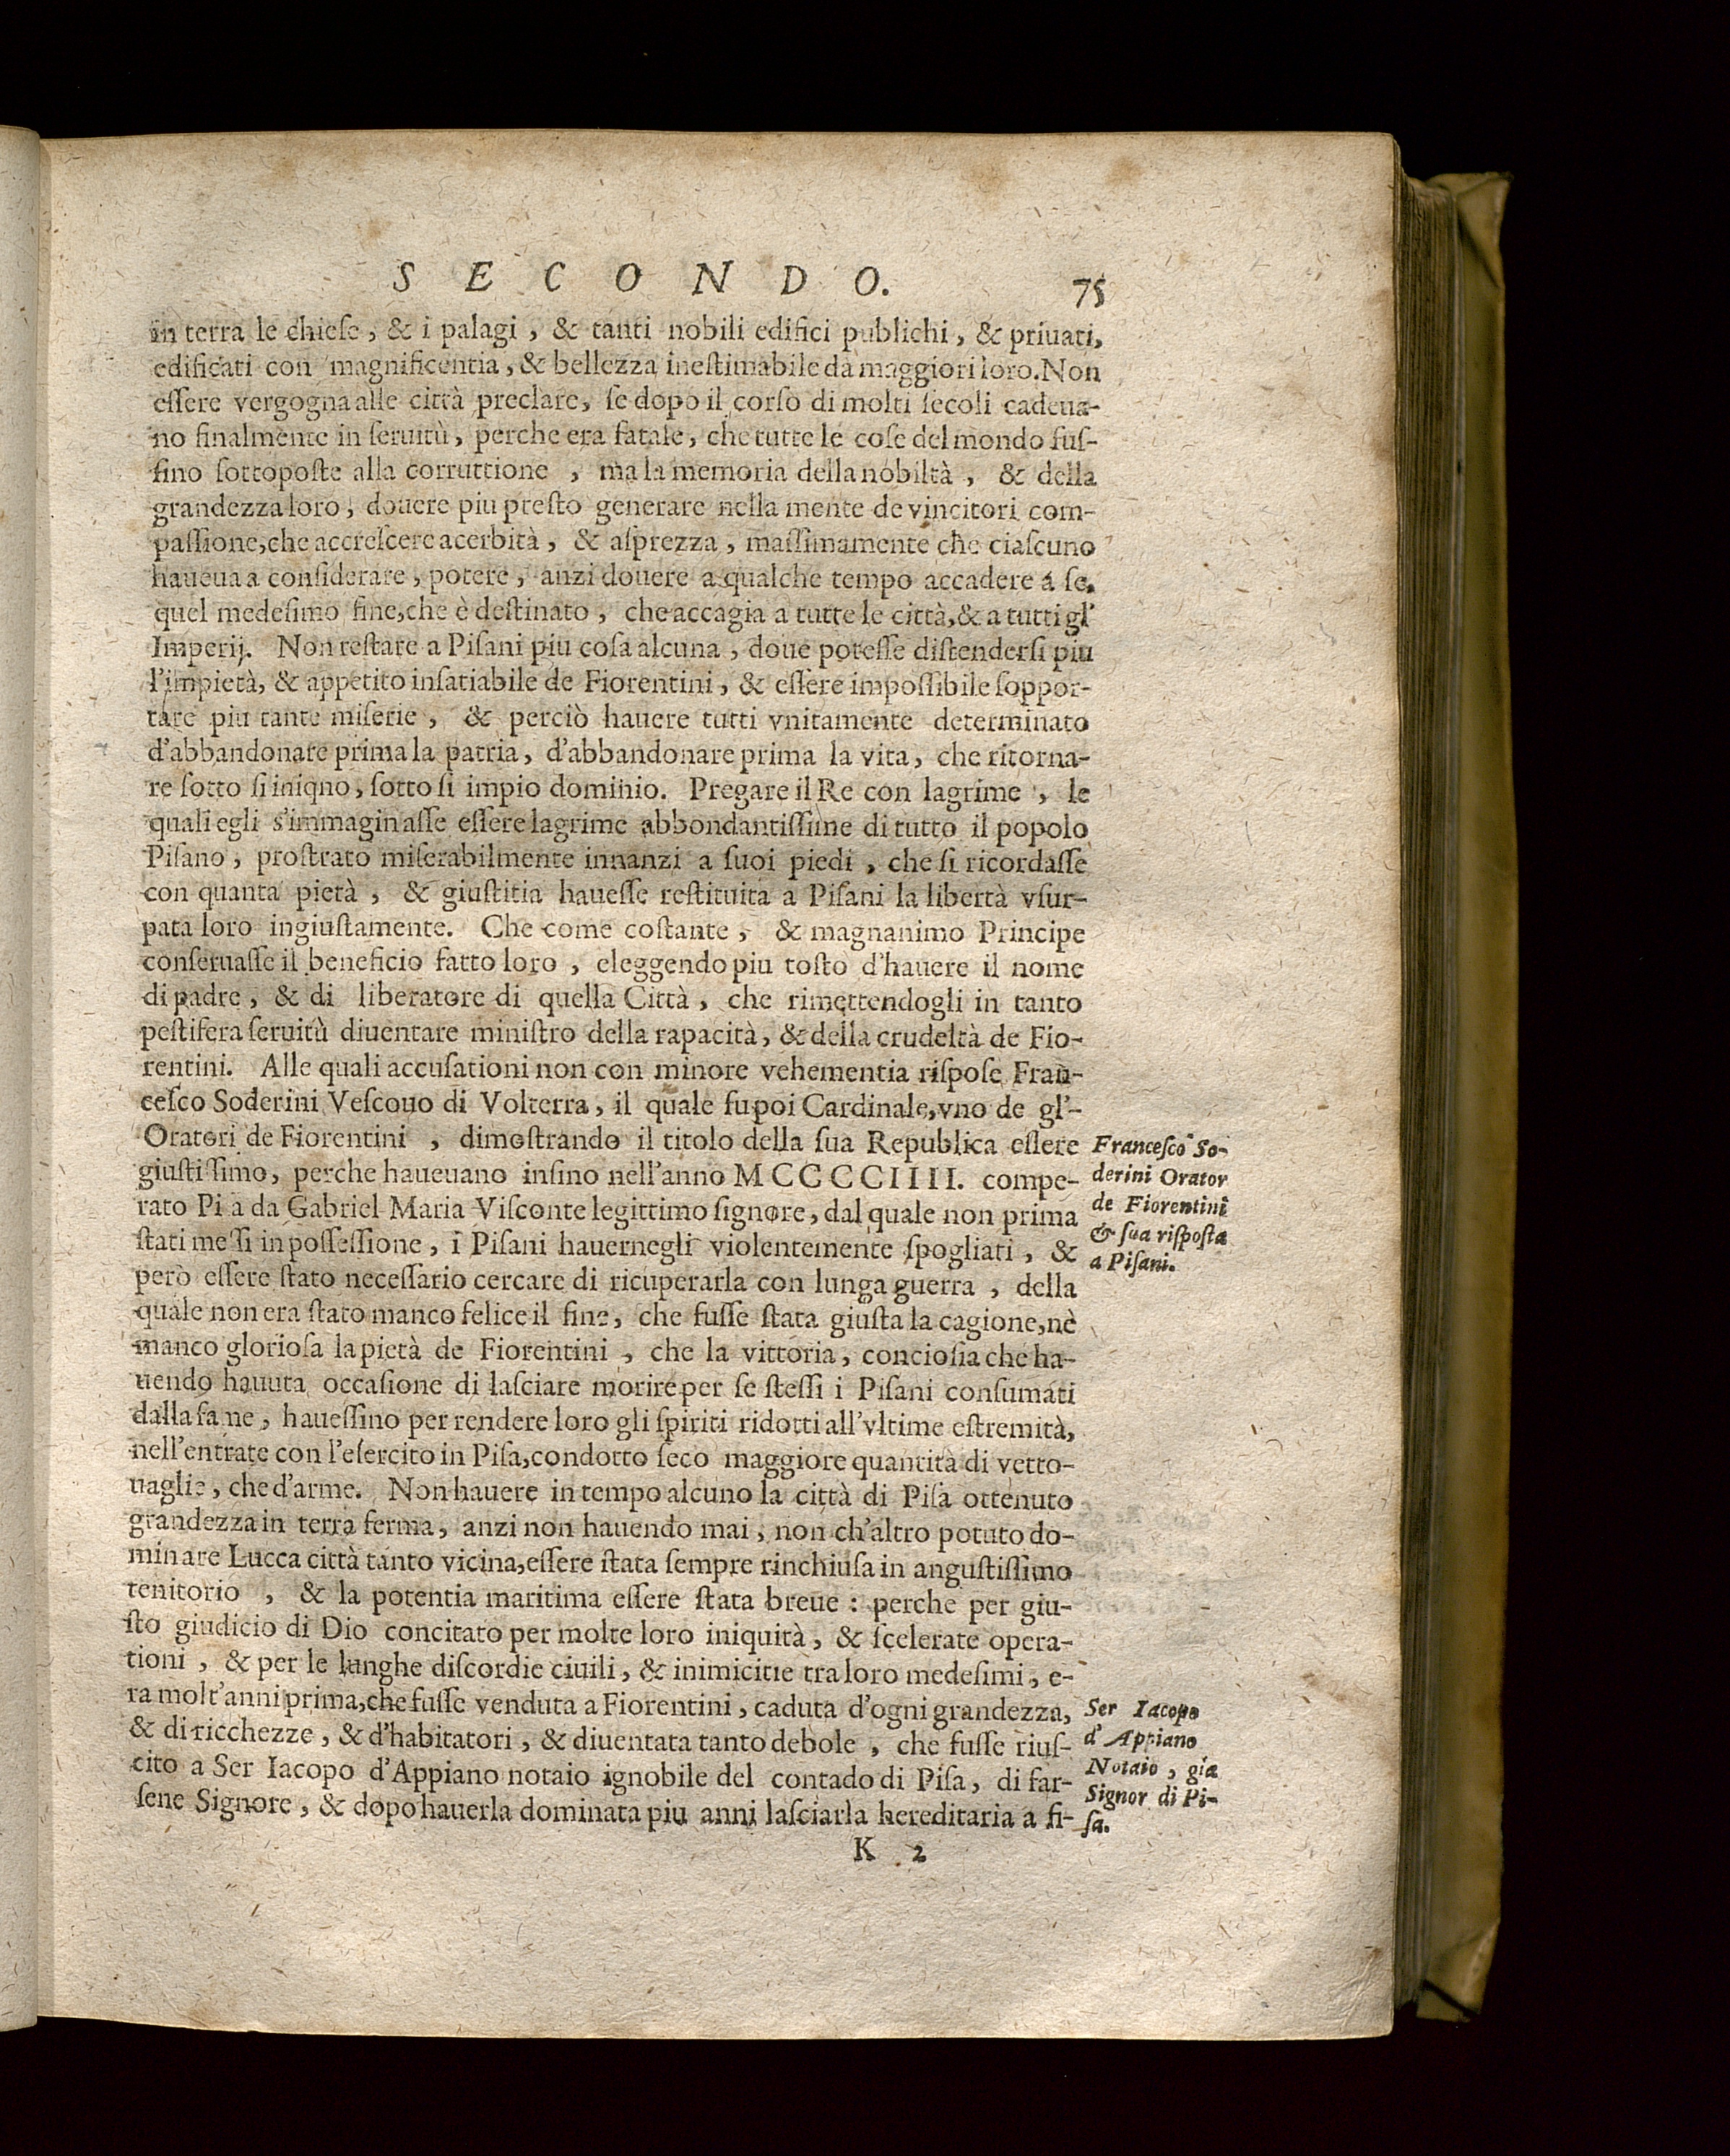 SECONDO. 75
in terra le chieſe, & i palagi, & tanti nobili edifici publichi, & priuati,
edificati con magnificentia, & bellezza ineſtimabile da maggiori loro. Non
eſſere vergogna alle città preclare, ſe dopo il corſo di molti ſecoli cadeua-
no finalmente in ſeruitù, perche era fatale, che tutte le coſe del mondo fuſ-
ſino ſottopoſte alla corruttione, ma la memoria della nobiltà, & della
grandezza loro, douere piu preſto generare nella mente de vincitori com-
paſſione, che accreſcere acerbità, & aſprezza, maſſimamente che ciaſcuno
haueua a conſiderare, potere, anzi douere a qualche tempo accadere a ſe,
quel medeſimo fine, che è deſtinato, che accagia a tutte le città, & a tutti gl'
Imperij. Non reſtare a Piſani piu coſa alcuna, doue poteſſe diſtenderſi piu
l'impietà, & appetito inſatiabile de Fiorentini, & eſſere impoſſibile ſoppor-
tare piu tante miſerie, & perciò hauere tutti vnitamente determinato
d'abbandonare prima la patria, d'abbandonare prima la vita, che ritorna-
re ſotto ſi iniqno, ſotto ſi impio dominio. Pregare il Re con lagrime, le
quali egli s'immaginaſſe eſſere lagrime abbondantiſſime di tutto il popolo
Piſano, proſtrato miſerabilmente innanzi a ſuoi piedi, che ſi ricordaſſe
con quanta pietà, & giuſtitia haueſſe reſtituita a Piſani la libertà vſur-
pata loro ingiuſtamente. Che come coſtante, & magnanimo Principe
conſeruaſſe il beneficio fatto loro, eleggendo piu toſto d'hauere il nome
di padre, & di liberatore di quella Città, che rimettendogli in tanto
peſtifera ſeruitù diuentare miniſtro della rapacità, & della crudeltà de Fio-
rentini. Alle quali accuſationi non con minore vehementia riſpoſe Fran-
ceſco Soderini Veſcouo di Volterra, il quale fu poi Cardinale, vno de gl'-
Oratori de Fiorentini, dimoſtrando il titolo della ſua Republica eſſere
giuſtiſſimo, perche haueuano inſino nell'anno MCCCCIIII. compe-
rato Pi a da Gabriel Maria Viſconte legittimo ſignore, dal quale non prima
ſtati meſſi in poſſeſſione, i Piſani hauernegli violentemente ſpogliati, &
però eſſere ſtato neceſſario cercare di ricuperarla con lunga guerra, della
quale non era ſtato manco felice il fine, che fuſſe ſtata giuſta la cagione, nè
manco glorioſa la pietà de Fiorentini, che la vittoria, concioſia che ha-
uendo hauuta occaſione di laſciare morire per ſe ſteſſi i Piſani conſumati
dalla fame, haueſſino per rendere loro gli ſpiriti ridotti all'vltime eſtremità,
nell'entrate con l'eſercito in Piſa, condotto ſeco maggiore quantità di vetto-
uaglie, che d'arme. Non hauere in tempo alcuno la città di Piſa ottenuto
grandezza in terra ferma, anzi non hauendo mai, non ch'altro potuto do-
minare Lucca città tanto vicina, eſſere ſtata ſempre rinchiuſa in anguſtiſſimo
tenitorio, & la potentia maritima eſſere ſtata breue: perche per giu-
ſto giudicio di Dio concitato per molte loro iniquità, & ſcelerate opera-
tioni, & per le lunghe diſcordie ciuili, & inimicitie tra loro medeſimi, e-
ra molt'anni prima, che fuſſe venduta a Fiorentini, caduta d'ogni grandezza,
& di ricchezze, & d'habitatori, & diuentata tanto debole, che fuſſe riuſ-
cito a Ser Iacopo d'Appiano notaio ignobile del contado di Piſa, di far-
ſene Signore, & dopo hauerla dominata piu anni laſciarla hereditaria a fi-
K 2
Franceſco So-
derini Orator
de Fiorentini
& ſua riſpoſta
a Piſani.
Ser Iacopo
d'Appiano
Notaio, già
Signor di Pi-
ſa.